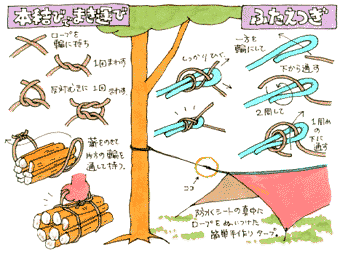 本結びとまき結び
ロープを
輪に持ち
1回まわす
反対むきに1回
まわす
薪をのせて
片方の輪を
通して持つ。
ふたえつぎ
一方を
輪にして
下から通す
しっかりひく
2周して
1周めの
下に
通す
ココ
防水シートの真中に
ロープをぬいつけた
簡単手作りタープ。